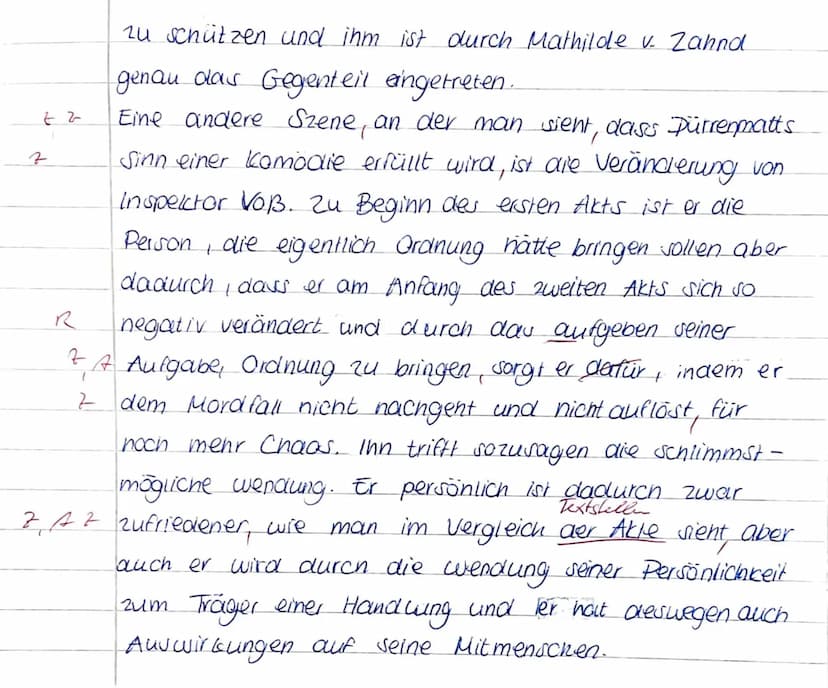 zu schützen und ihm ist durch Mathilde v. Zahnd
genau das Gegenteil eingetreten.
t z Eine andere Szene, an der man sieht, dass Dürrenmatts
z Sinn einer Komödie erfüllt wird, ist die Veränderung von
Inspektor Voß. Zu Beginn des ersten Akts ist er die
Person, die eigentlich Ordnung hätte bringen sollen aber
dadurch, dass er am Anfang des zweiten Akts sich so
R negativ verändert und durch das aufgeben seiner
Z, A Aufgabe, Ordnung zu bringen, sorgt er dafür, indem er
Z dem Mordfall nicht nachgeht und nicht auflöst, für
noch mehr Chaos. Ihn trifft sozusagen die schlimmst-
mögliche wendung. Er persönlich ist dadurch zwar
Textstellen
Z, A Z zufriedener, wie man im Vergleich der Akte sieht, aber
auch er wird durch die wendung seiner Persönlichkeit
zum Träger einer Handlung und er hat deswegen auch
Auswirkungen auf seine Mitmenschen.